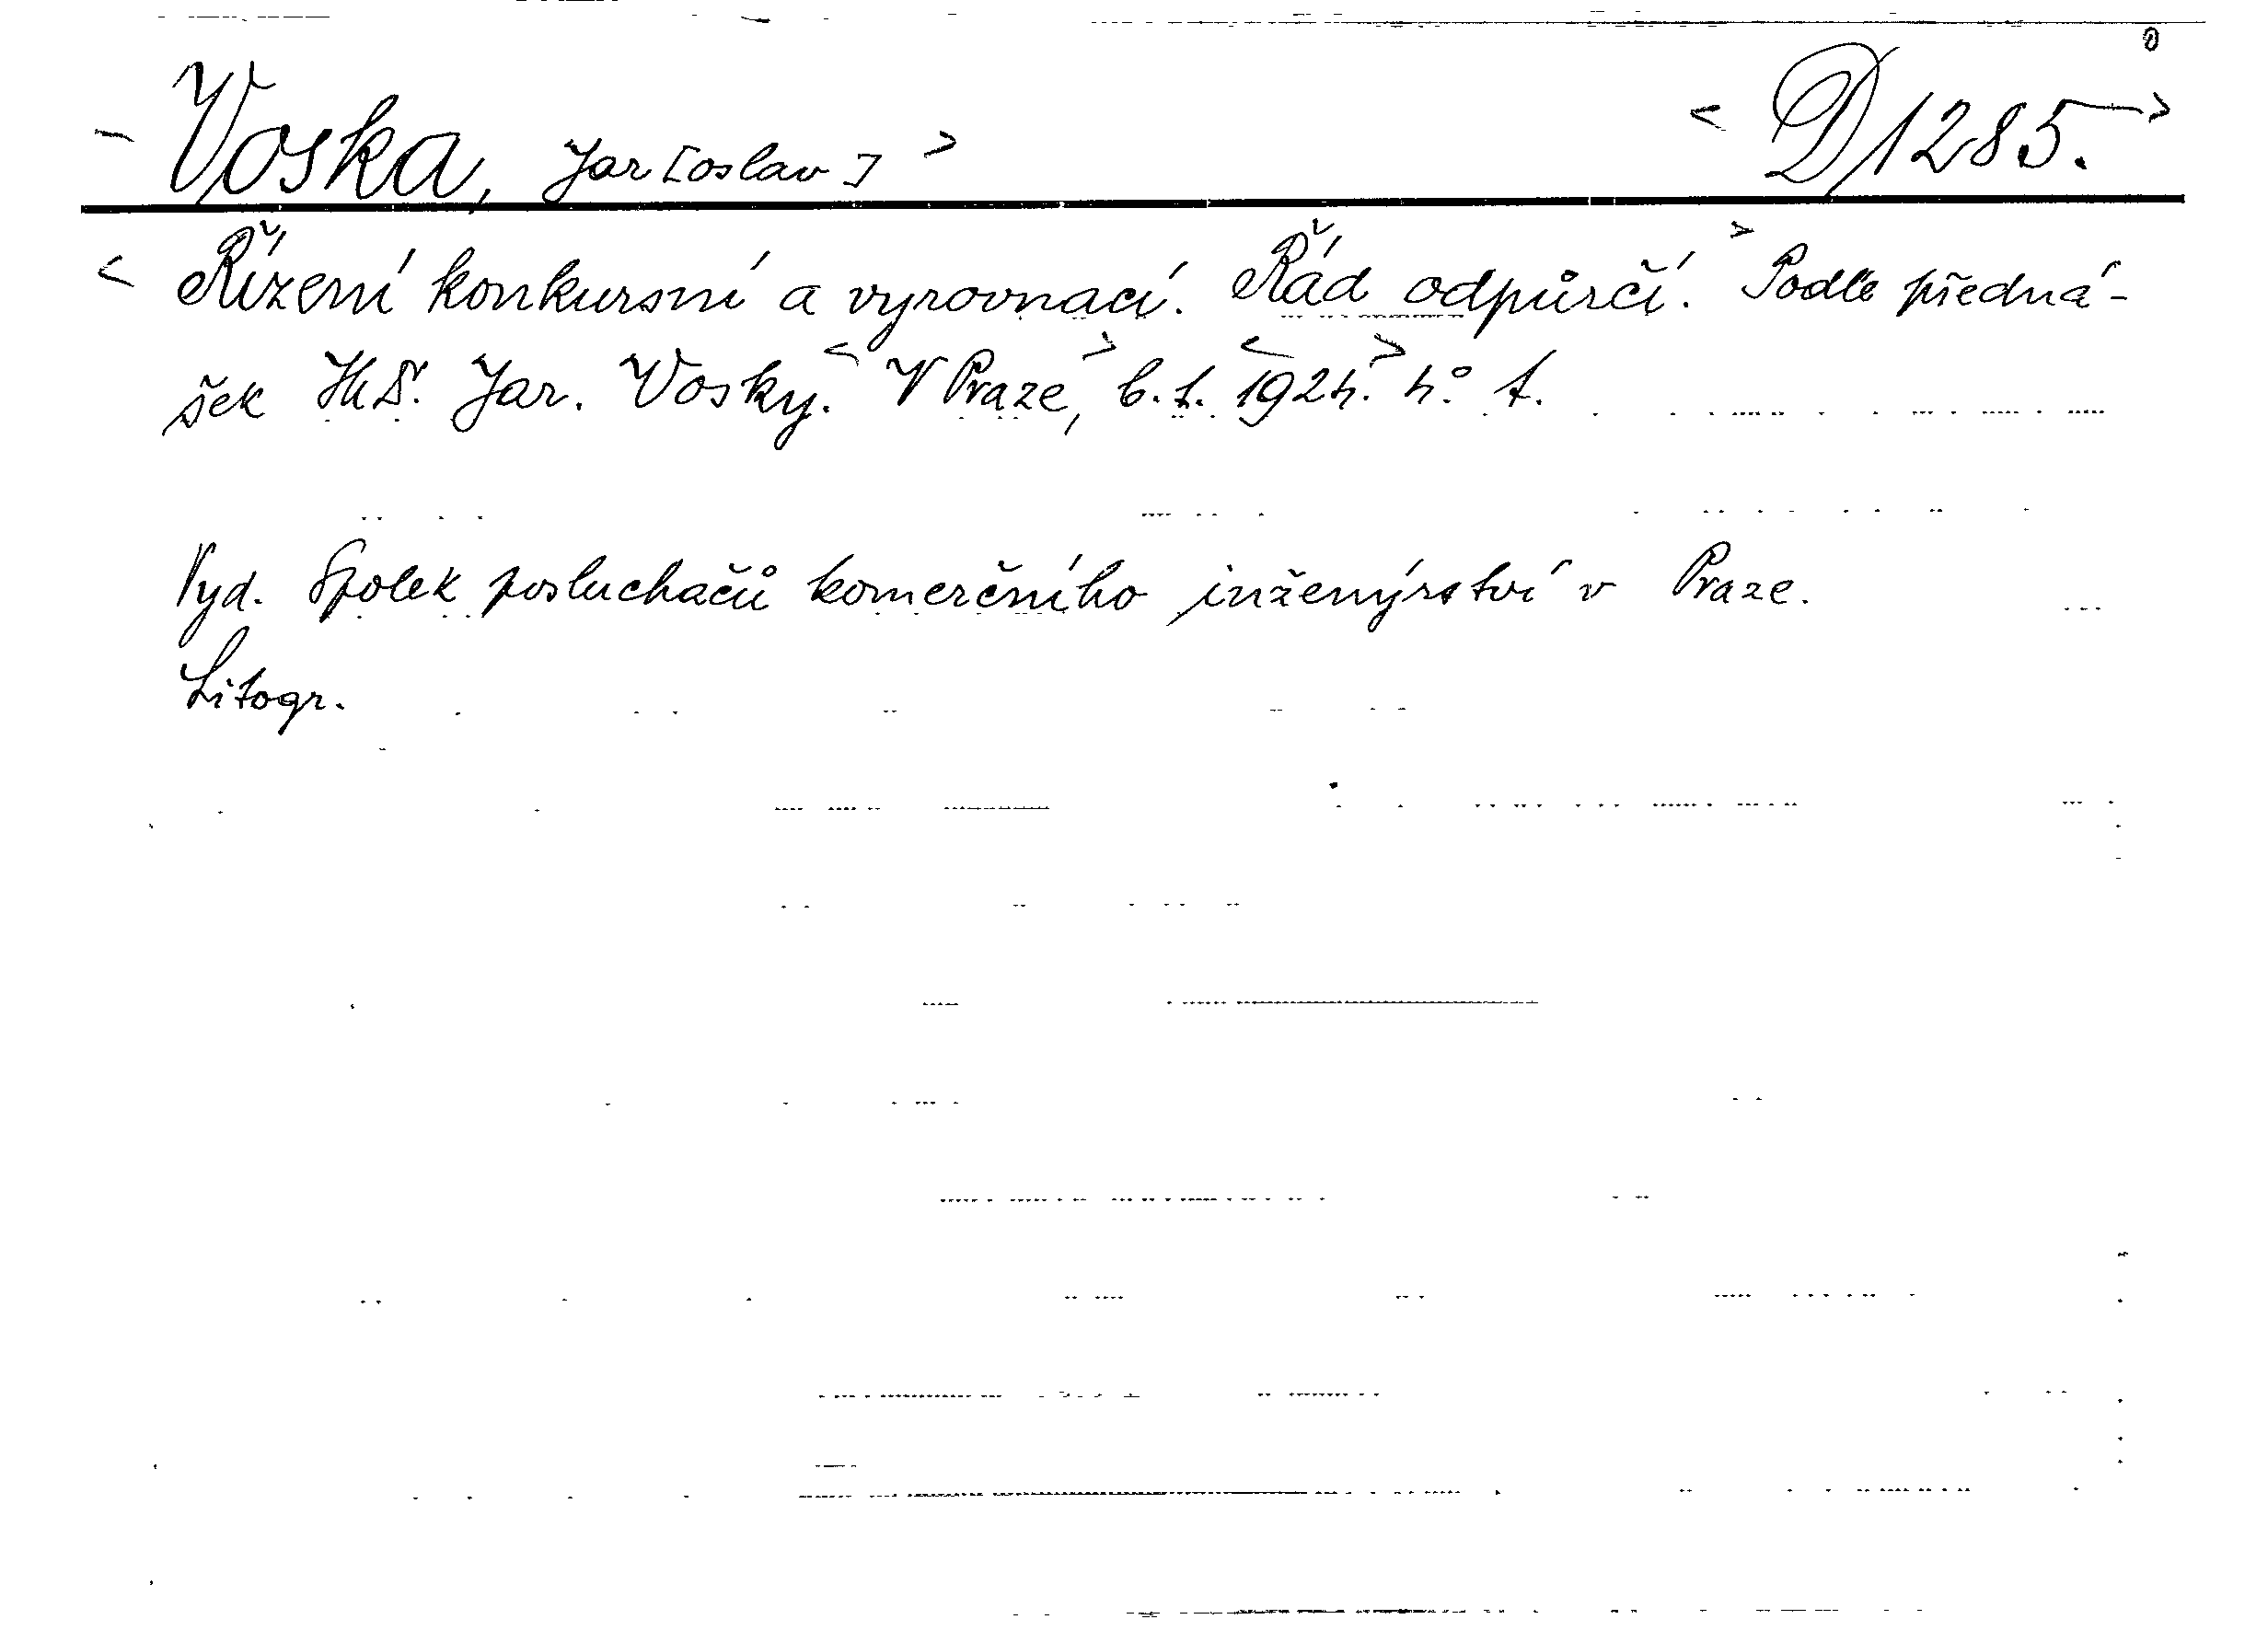 <Voska, Jar[oslav]> <D 1285.>
<Řízení konkursní a vyrovnací. Řád odpůrčí.> Podle předná-
šek JUDr. Jar. Vosky. <V Praze,> b. t. <1924.> 4° t.
Vyd. Spolek posluchačů komerčního inženýrství v Praze.
Litogr.